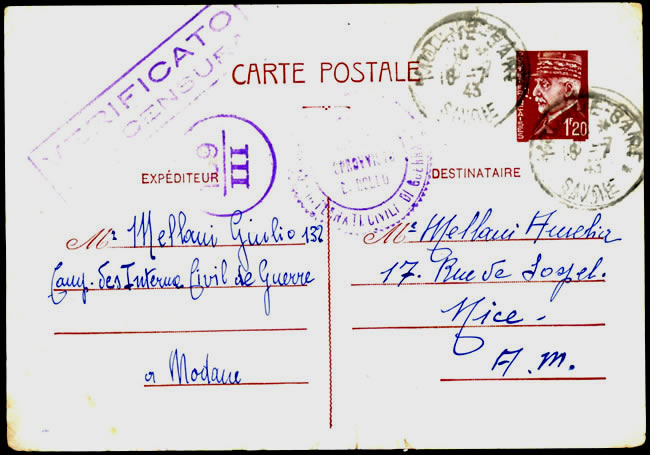 VERIFICATO
CENSURA
CARTE POSTALE
MODANE-GARE
18 -7
43
SAVOIE
1f20
MODANE-GARE
18 -7
43
SAVOIE
III
EXPÉDITEUR
INTERNATI CIVILI DI
DESTINATAIRE
Mr Mellani Giulio 132
Camp. des Interne Civil de Guerre
a Modane
Mr Mellani Amelia
17. Rue de Sospel.
Nice -
A. M.